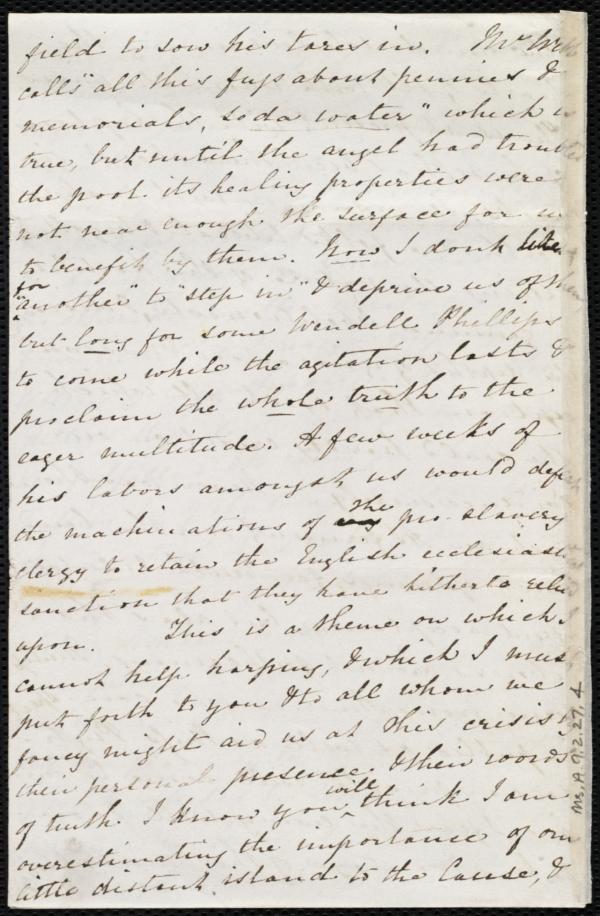 field to sow his tares in. Mr
calls "all this fuss about pennies &
memorials, soda water" which
true, but until the angel had
the pool its healing properties were
not near enough the surface for us
to benefit by them. Now I don't like
for
"another" to "step in" & deprive us of them
but long for some Wendell Phillips
to come while the agitation lasts &
proclaim the whole truth to the
eager multitude. A few weeks of
his labors amongst us would
the machinations of the pro-slavery
clergy to retain the English
sanction that they have hitherto
upon. This is a theme on which
cannot help harping, & which I
put forth to you & to all whom we
fancy might aid us at this crisis
their personal presence & their words
of truth. I know you will think I am
overestimating the importance of our
little distant island to the Cause, &
Ms. A. 9. 2. 27, 4